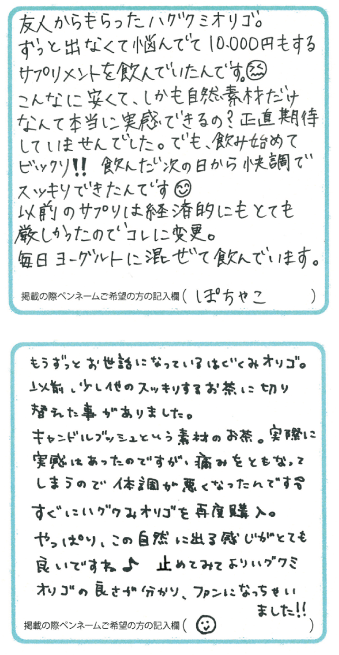 友人からもらったハグクミオリゴ。
ずっと出なくて悩んでて10.000円もする
サプリメントを飲んでいたんです。
こんなに安くて、しかも自然素材だけ
なんて本当に実感できるの?正直期待
していませんでした。でも、飲み始めて
ビックリ!!飲んだ次の日から快調で
スッキリできたんです
以前のサプリは経済的にもとても
厳しかったのでコレに変更。
毎日ヨーグルトに混ぜて飲んでいます。
掲載の際ペンネームご希望の方の記入欄(ぽちゃこ)
もうずっとお世話になっているはぐくみオリゴ。
以前、少し他のスッキリするお茶に切り
替えた事がありました。
キャンドルブッシュという素材のお茶。実際に
実感はあったのですが、痛みをともなって
しまうので体調が悪くなったんです
すぐにハグクみオリゴを再度購入。
やっぱり、この自然に出る感じがとても
良いですね♪ 止めてみてよりハグクミ
オリゴの良さが分かり、ファンになっちゃい
ました!!
掲載の際ペンネームご希望の方の記入欄( )